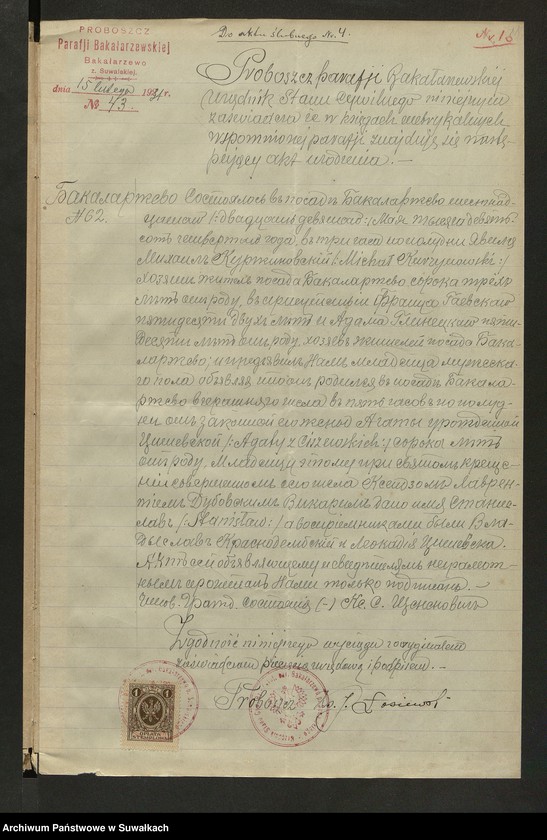 Do aktu ślubnego Nr. 4.
PROBOSZCZ
Parafji Bakałarzewskiej
Bakałarzewo
z. Suwalskiej.
dnia 15 lutego 1931 r.
№ 43.
Proboszcz parafji Bakałarzewskiej
Urzędnik Stanu Cywilnego niniejszym
zaświadcza że w księgach metrykalnych
wspomnionej parafji znajduje się nastę-
pujący akt urodzenia. —
Бакаларжево Состоялось въ посадѣ Бакаларжево шестнад-
№ 62.
цатаго /: двадцать девятаго :/ Мая тысяча девять-
сотъ четвертаго года, въ три часа по полудни. Явился
Михаилъ Куржиновскій /: Michał Kurzynowski :/
хозяинъ житель посада Бакаларжево, сорока трехъ
лѣтъ отъ роду, въ присутствіи Франца Гаевскаго
пятидесяти двухъ лѣтъ и Адама Глинецкаго пяти-
десяти лѣтъ отъ роду, хозяевъ жителей посада Бака-
ларжево; и предъявилъ Намъ младенца мужеска-
го пола объявляя что онъ родился въ посадѣ Бакала-
ржево вчерашняго числа въ пять часовъ по полуд-
ни отъ законной его жены Агаты урожденной
Цишевской /: Agaty z Ciszewskich :/ сорока лѣтъ
отъ роду. Младенцу этому при святомъ креще-
ніи совершенномъ сего числа Ксендзомъ Лаврен-
тіемъ Дубовскимъ Викаріемъ дано имя Станис-
лавъ /: Stanisław :/ а воспріемниками были Вла-
дыславъ Краснодембскій и Леокадія Цишевска.
Актъ сей объявляющему и свидѣтелямъ неграмот-
нымъ прочитанъ Нами только подписанъ. —
(-) Кс. С.
Zgodność niniejszego wyciągu z oryginałem
zaświadczam pieczęcią urzędową i podpisem. —
Proboszcz Ks. J.
1
1
Archiwum Państwowe w Suwałkach